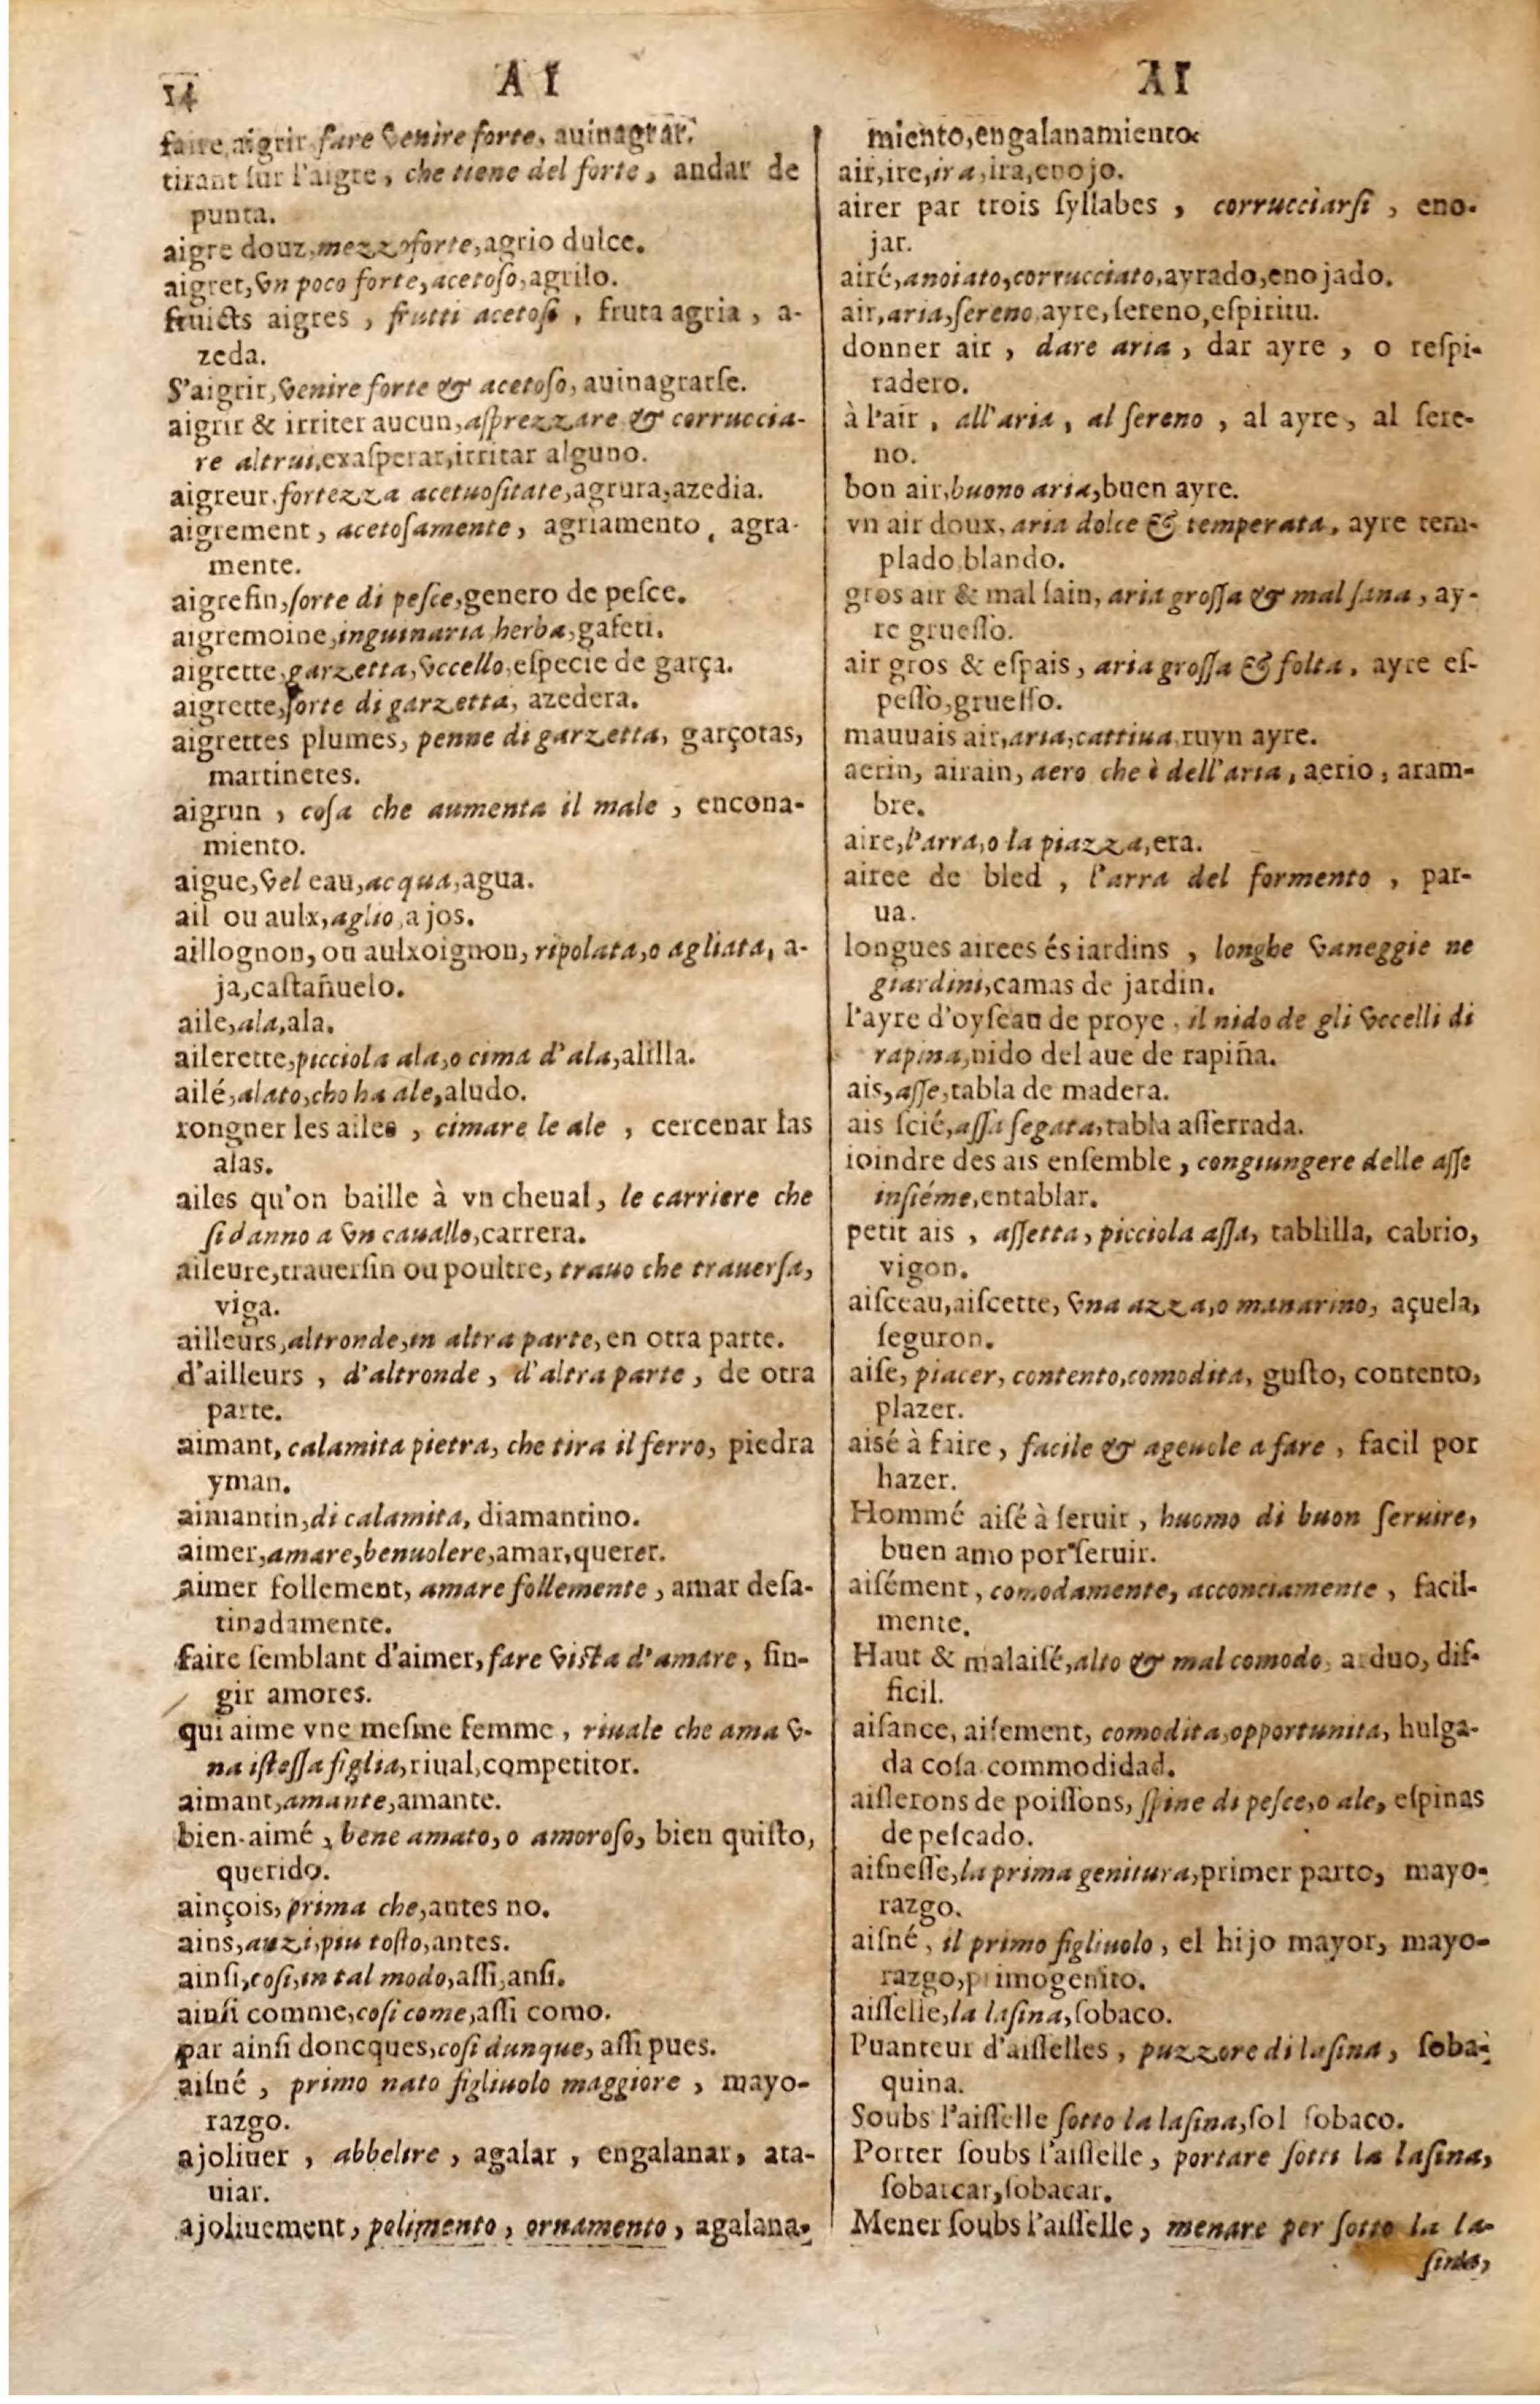 14
A I
A I
faire aigrir fare venire forte, auinagrar.
tirant ſur l'aigre, che tiene del forte, andar de
punta.
aigre douz, mezzo forte, agrio dulce.
aigret, vn poco forte, acetoſo, agrilo.
fruicts aigres, frutti acetoſi, fruta agria, a-
zeda.
S'aigrir, venire forte & acetoſo, auinagrarſe.
aigrir & irriter aucun, aſprezzare & corruccia-
re altrui, exaſperar, irritar alguno.
aigreur, fortezza acetuoſitate, agrura, azedia.
aigrement, acetoſamente, agriamento, agra-
mente.
aigrefin, ſorte di peſce, genero de peſce.
aigremoine, inguinaria herba, gafeti.
aigrette, garzetta, vccello, eſpecie de garça.
aigrette, ſorte di garzetta, azedera.
aigrettes plumes, penne di garzetta, garçotas,
martinetes.
aigrun, coſa che aumenta il male, encona-
miento.
aigue, vel eau, acqua, agua.
ail ou aulx, aglio, ajos.
aillognon, ou aulxoignon, ripolata, o agliata, a-
ja, caſtañuelo.
aile, ala, ala.
ailerette, picciola ala, o cima d'ala, alilla.
ailé, alato, cho ha ale, aludo.
rongner les ailes, cimare le ale, cercenar las
alas.
ailes qu'on baille à vn cheual, le carriere che
ſi danno a vn cauallo, carrera.
aileure, trauerſin ou poultre, trauo che trauerſa,
viga.
ailleurs, altronde, in altra parte, en otra parte.
d'ailleurs, d'altronde, d'altra parte, de otra
parte.
aimant, calamita pietra, che tira il ferro, piedra
yman.
aimantin, di calamita, diamantino.
aimer, amare, benuolere, amar, querer.
aimer follement, amare follemente, amar deſa-
tinadamente.
faire ſemblant d'aimer, fare viſta d'amare, fin-
gir amores.
qui aime vne meſme femme, riuale che ama v-
na iſteſſa figlia, riual, competitor.
aimant, amante, amante.
bien-aimé, bene amato, o amoroſo, bien quiſto,
querido.
ainçois, prima che, antes no.
ains, auzi, piu toſto, antes.
ainſi, coſi, in tal modo, aſſi, anſi.
ainſi comme, coſi come, aſſi como.
par ainſi doncques, coſi dunque, aſſi pues.
aiſné, primo nato figliuolo maggiore, mayo-
razgo.
ajoliuer, abbelire, agalar, engalanar, ata-
uiar.
ajoliuement, polimento, ornamento, agalana-
miento, engalanamiento.
air, ire, ira, ira, enojo.
airer par trois ſyllabes, corrucciarſi, eno-
jar.
airé, anoiato, corrucciato, ayrado, enojado.
air, aria, ſereno ayre, ſereno, eſpiritu.
donner air, dare aria, dar ayre, o reſpi-
radero.
à l'air, all'aria, al ſereno, al ayre, al ſere-
no.
bon air, buono aria, buen ayre.
vn air doux, aria dolce & temperata, ayre tem-
plado blando.
gros air & mal ſain, aria groſſa & mal ſana, ay-
re grueſſo.
air gros & eſpais, aria groſſa & folta, ayre eſ-
peſſo, grueſſo.
mauuais air, aria, cattiua ruyn ayre.
aerin, airain, aero che è dell'aria, aerio, aram-
bre.
aire, l'arra, o la piazza, era.
airee de bled, l'arra del formento, par-
ua.
longues airees és iardins, longhe vaneggie ne
giardini, camas de jardin.
l'ayre d'oyſeau de proye, il nido de gli vccelli di
rapina, nido del aue de rapiña.
ais, aſſe, tabla de madera.
ais ſcié, aſſa ſegata, tabla aſſerrada.
ioindre des ais enſemble, congiungere delle aſſe
inſiéme, entablar.
petit ais, aſſetta, picciola aſſa, tablilla, cabrio,
vigon.
aiſceau, aiſcette, vna azza, o manarino, açuela,
ſeguron.
aiſe, piacer, contento, comodita, guſto, contento,
plazer.
aisé à faire, facile & ageuole a fare, facil por
hazer.
Hommé aiſé à ſeruir, huomo di buon ſeruire,
buen amo por ſeruir.
aiſément, comodamente, acconciamente, facil-
mente.
Haut & malaiſé, alto & mal comodo, arduo, dif-
ficil.
aiſance, aiſement, comodita, opportunita, hulga-
da coſa commodidad.
aiſlerons de poiſſons, ſpine di peſce, o ale, eſpinas
de peſcado.
aiſneſſe, la prima genitura, primer parto, mayo-
razgo.
aiſné, il primo figliuolo, el hijo mayor, mayo-
razgo, primogenito.
aiſſelle, la laſina, ſobaco.
Puanteur d'aiſſelles, puzzore di laſina, ſoba-
quina.
Soubs l'aiſſelle ſotto la laſina, ſol ſobaco.
Porter ſoubs l'aiſſelle, portare ſotti la laſina,
ſobarcar, ſobacar.
Mener ſoubs l'aiſſelle, menare per ſotto la la-
ſina,